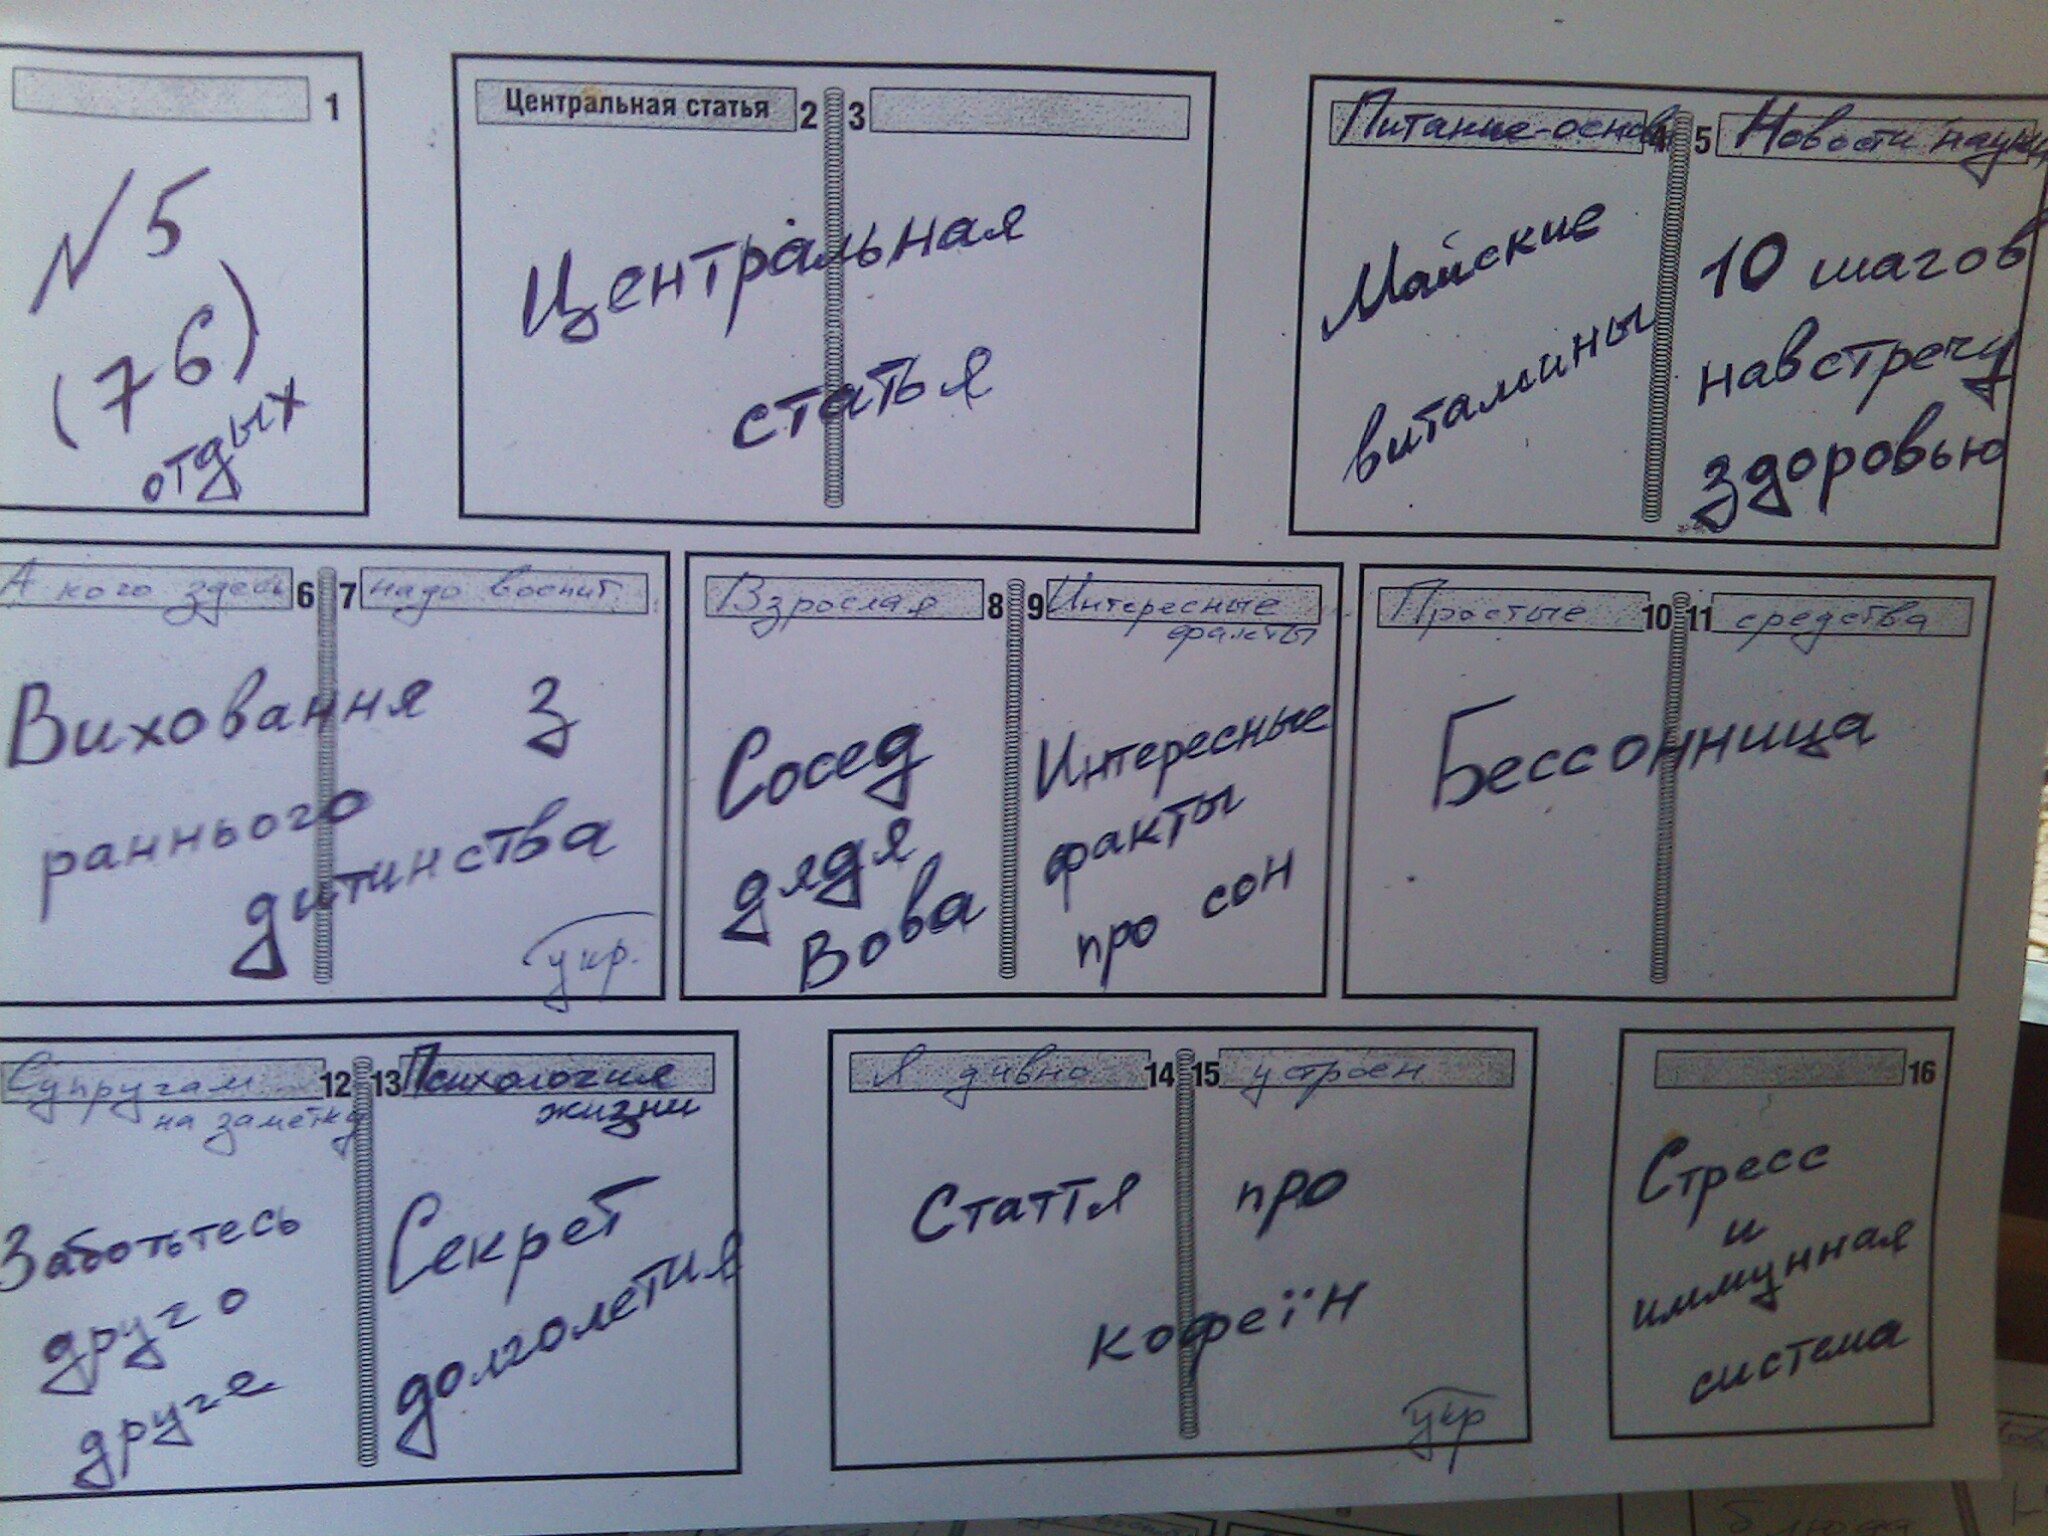 1
№ 5
(76)
отдых
Центральная статья 2 3
Центральная
статья
Питание-основа 4
Майские
витамины
5 Новости науки
10 шагов
навстречу
здоровью
А кого здесь 6 7 надо воспит.
Виховання з
раннього
дитинства
укр.
Взрослая 8
Сосед
дядя
Вова
9 Интересные
факты
Интересные
факты
про сон
Простые 10 11 средства
Бессонница
Супругам 12
на заметку
Заботьтесь
друг о
друге
13 Психология
жизни
Секрет
долголетия
Я дивно 14 15 устроен
Стаття про
кофеїн
укр
16
Стресс
и
иммунная
система